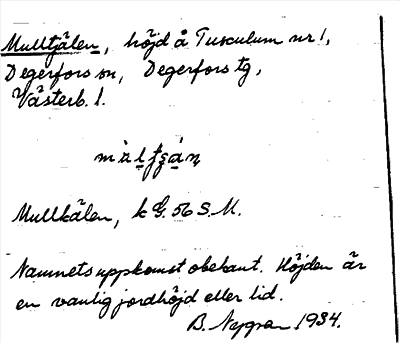 Mulltjälen, höjd å Tusculum nr 1,
Degerfors sn, Degerfors tg,
Västerb. l.
Mullkälen, k G. 56 S.M.
Namnets uppkomst obekant. Höjden är
en vanlig jordhöjd eller lid.
B. Nygren 1934.